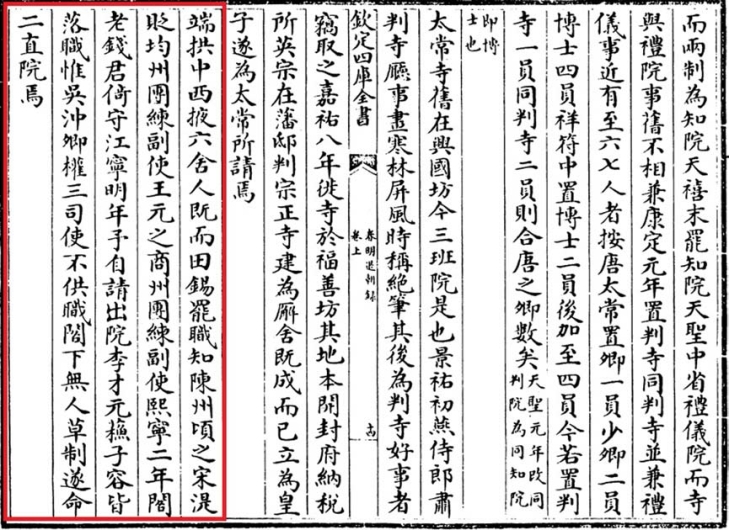 而兩制為知院天禧末罷知院天聖中省禮儀院而寺
與禮院事舊不相兼康定元年置判寺同判寺並兼禮
儀事近有至六七人者按唐太常置卿一員少卿二員
博士四員祥符中置博士二員後加至四員今若置判
寺一員同判寺二員則合唐之卿數矣
天聖元年改同
判院為同知院
即博
士也
太常寺舊在興國坊今三班院是也景祐初燕侍郎肅
判寺廳事畫寒林屏風時稱絶筆其後為判寺好事者
欽定四庫全書
春明退朝録
卷上
十四
竊取之嘉祐八年徙寺於福善坊其地本開封府納稅
所英宗在藩邸判宗正寺建為廨舍既成而已立為皇
子遂為太常所請焉
端拱中西掖六舍人既而田錫罷職知陳州頃之宋湜
貶均州團練副使王元之商州團練副使熙寧二年閤
老錢君倚守江寧明年予自請出院李才元蘓子容皆
落職惟吳沖卿權三司使不供職閤下無人草制遂命
二直院焉